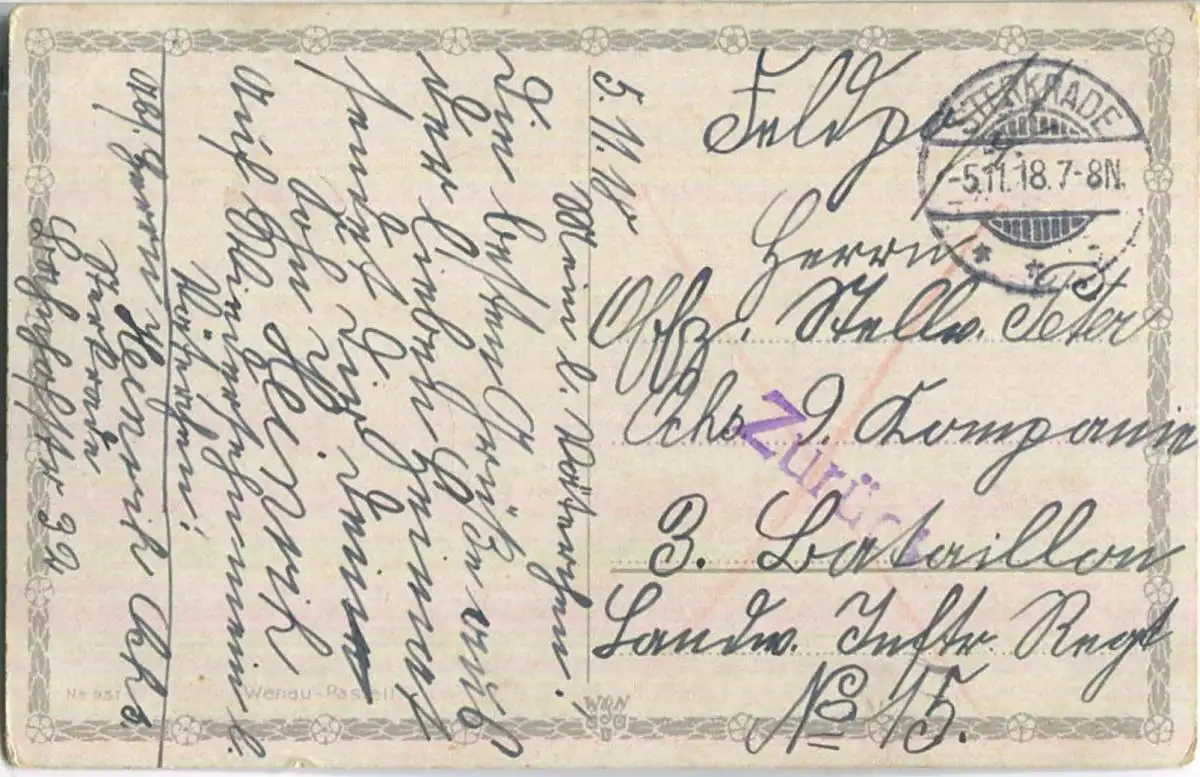 Feldpost
STERKRADE
-5.11.18.7-8N.
Herrn
Offz. Stellv. Peter
Ochs 9. Kompanie
3. Bataillon
Landw. Inftr. Regt
No 15.
Zurück
5.11.18
Mein l. Väterchen!
Die besten Grüße aus
der lieben Heimat
sendet Dir Dein
Sohn Heinrich
auf Wiedersehn mein l.
Väterchen!
Abs. Heinrich Ochs
Sterkrade
Bahnhofstr
No 951
Wenau-Pastell